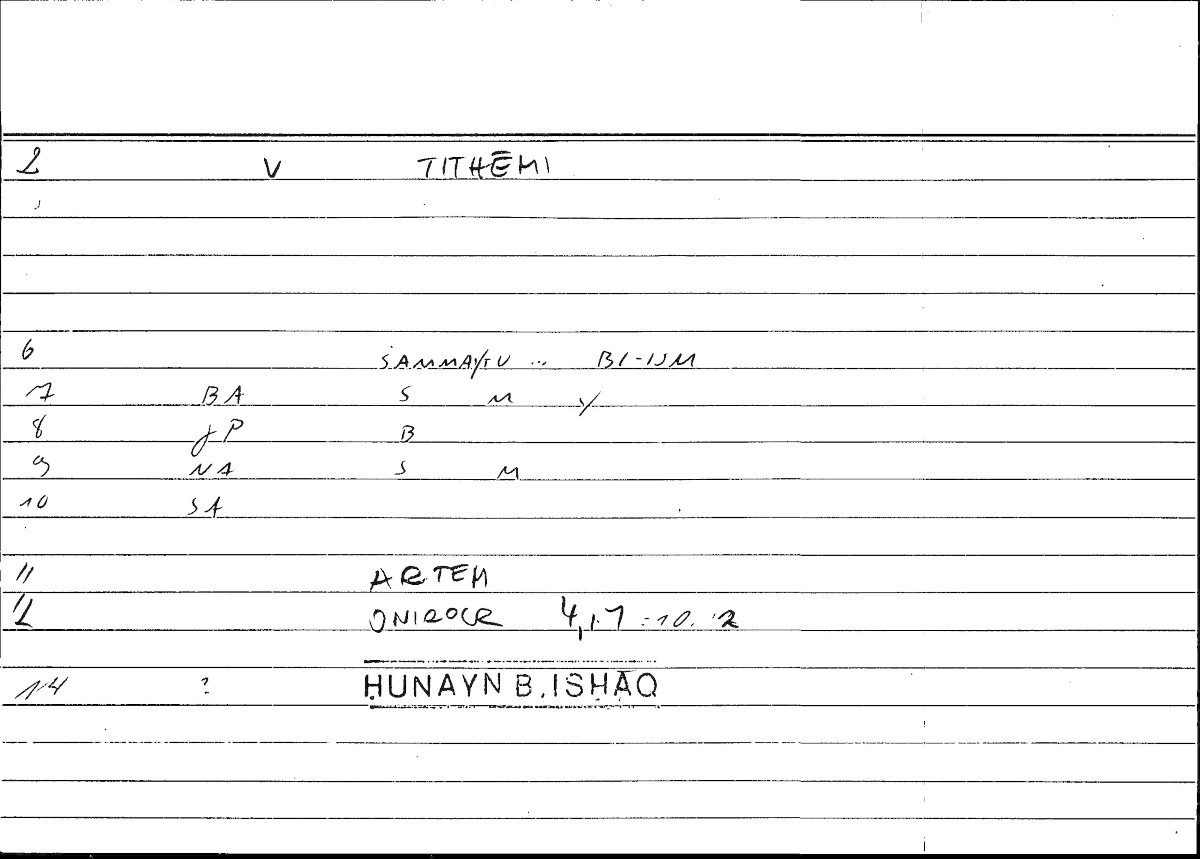 2 V TITHĒMI
6 SAMMAYTU ... BI-ISM
7 BA S M Y
8 JP B
9 NA S M
10 SA
11 ARTEM
12 ONIROCR 4,1.7 :10. 12
14 ? ḤUNAYN B. ISḤĀQ